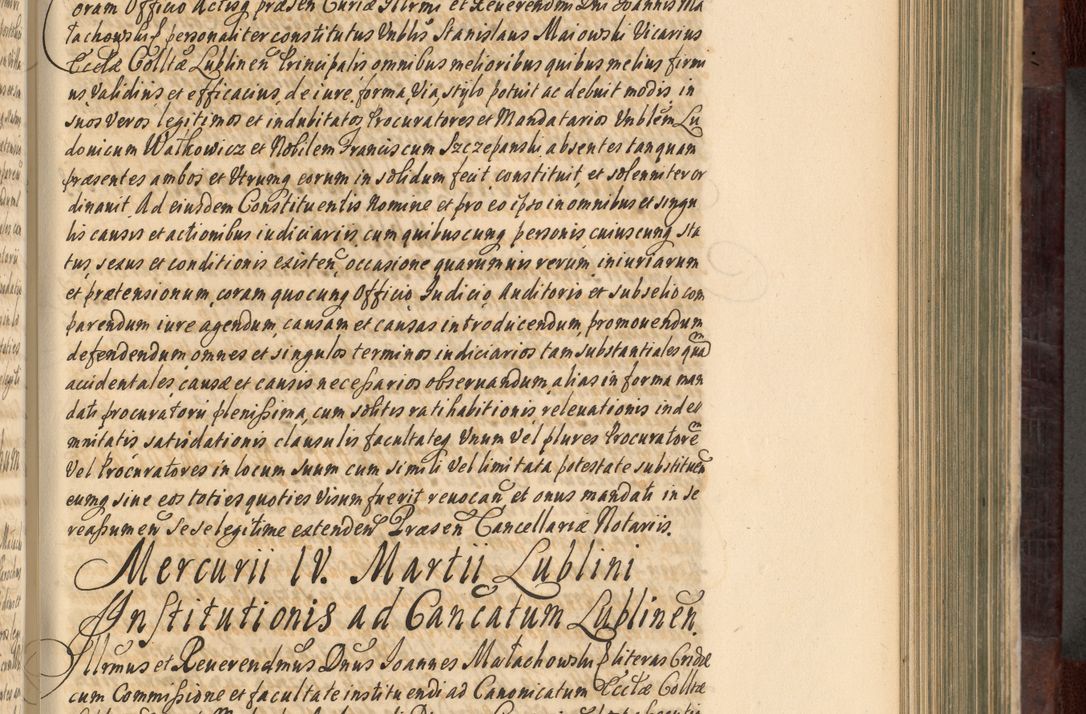 oram Officio Actisq præsen Curiæ Illrmi et Reuerendmi Dni Ioannis Ma
łachowski personaliter constitutus Vnblis Stanislaus Maiowski Vicarius
Ecclæ Colltæ Lublinen Principalis omnibus melioribus quibus melius firmi
us, validius et efficacius, de iure, forma, via, stylo potuit ac debuit modis, in
suos veros legitimos et indubitatos Procuratores et Mandatarios Vnblem Lu
douicum Walkowicz et Nobilem Franciscum Szczepanski absentes tanquam
præsentes ambos et Utrumq eorum in solidum fecit, constituit, et solenniter or
dinauit, Ad eiusdem Constituentis Nomine et pro eo ipso in omnibus et singu
lis causis et actionibus iudiciariis cum quibuscunq personis cuiuscunq sta
tus, sexus et conditionis existen, occasione quarumuis rerum, iniuriarum
et prætensionum, coram quocunq Officio, Iudicio, Auditorio et subselio com
parendum iure agendum, causam et causas introducendum, promouendum
defendendum, omnes et singulos terminos iudiciarios tam substantiales quam
accidentales, causæ et causis necessarios obseruandum, alias in forma man
dati procuratorii plenissima, cum solitis ratihabitionis, releuationis indei
mnitatis satisdationis clausulis facultateq Vnum Vel plures Procuratorem
Vel Procuratores in locum suum cum simili Vel limitata potestate substituen
eumq siue eos toties quoties Visum fuerit reuocan et onus mandati in se
reassumen Sese legitime extenden Præsen Cancellariæ Notariis.
Mercurii IV. Martii Lublini
Institutionis ad Cancatum Lublinen.
Illrmus et Reuerendmus Dnus Ioannes Małachowski literas Cridæ
cum Commissione et facultate instituendi ad Canonicatum Ecclæ Colltæ